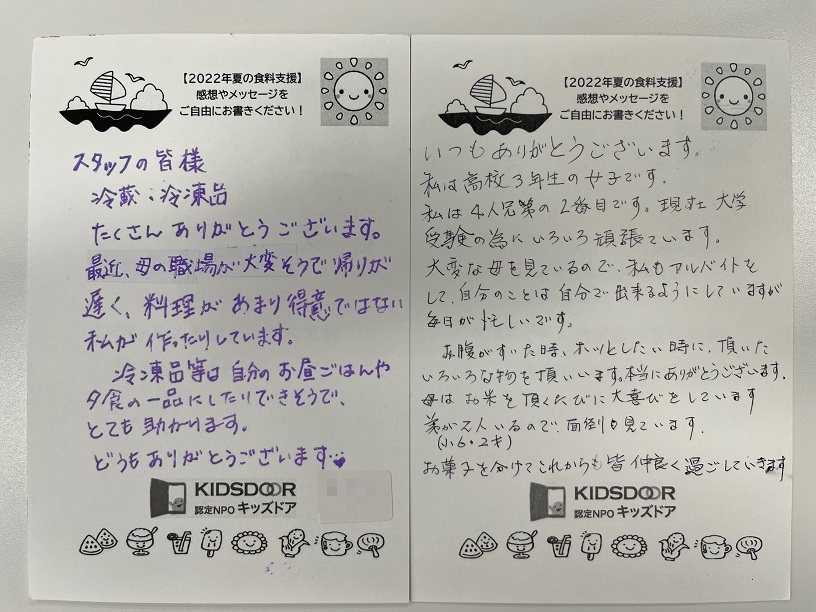 【2022年夏の食料支援】
感想やメッセージを
ご自由にお書きください！
スタッフの皆様
冷蔵・冷凍品
たくさんありがとうございます。
最近、母の職場が大変そうで帰りが
遅く、料理があまり得意ではない
私が作ったりしています。
冷凍品等は自分のお昼ごはんや
夕食の一品にしたりできそうで、
とても助かります。
どうもありがとうございます
KIDSDOOR
認定NPO キッズドア
【2022年夏の食料支援】
感想やメッセージを
ご自由にお書きください！
いつもありがとうございます。
私は高校3年生の女子です。
私は4人兄弟の2番目です。現在大学
受験の為にいろいろ頑張ています。
大変な母を見ているので、私もアルバイトを
して、自分のことは自分で出来るようにしていますが
毎日が忙しいです。
お腹がすいた時、ホッとしたい時に、頂いた
いろいろな物を頂いいます。本当にありがとうございます.
母はお米を頂くたびに大喜びをしています
弟が2人いるので、面倒も見ています.
(小6・2才)
お菓子を分けてこれからも皆仲良く過ごしていきます
KIDSDOOR
認定NPO キッズドア